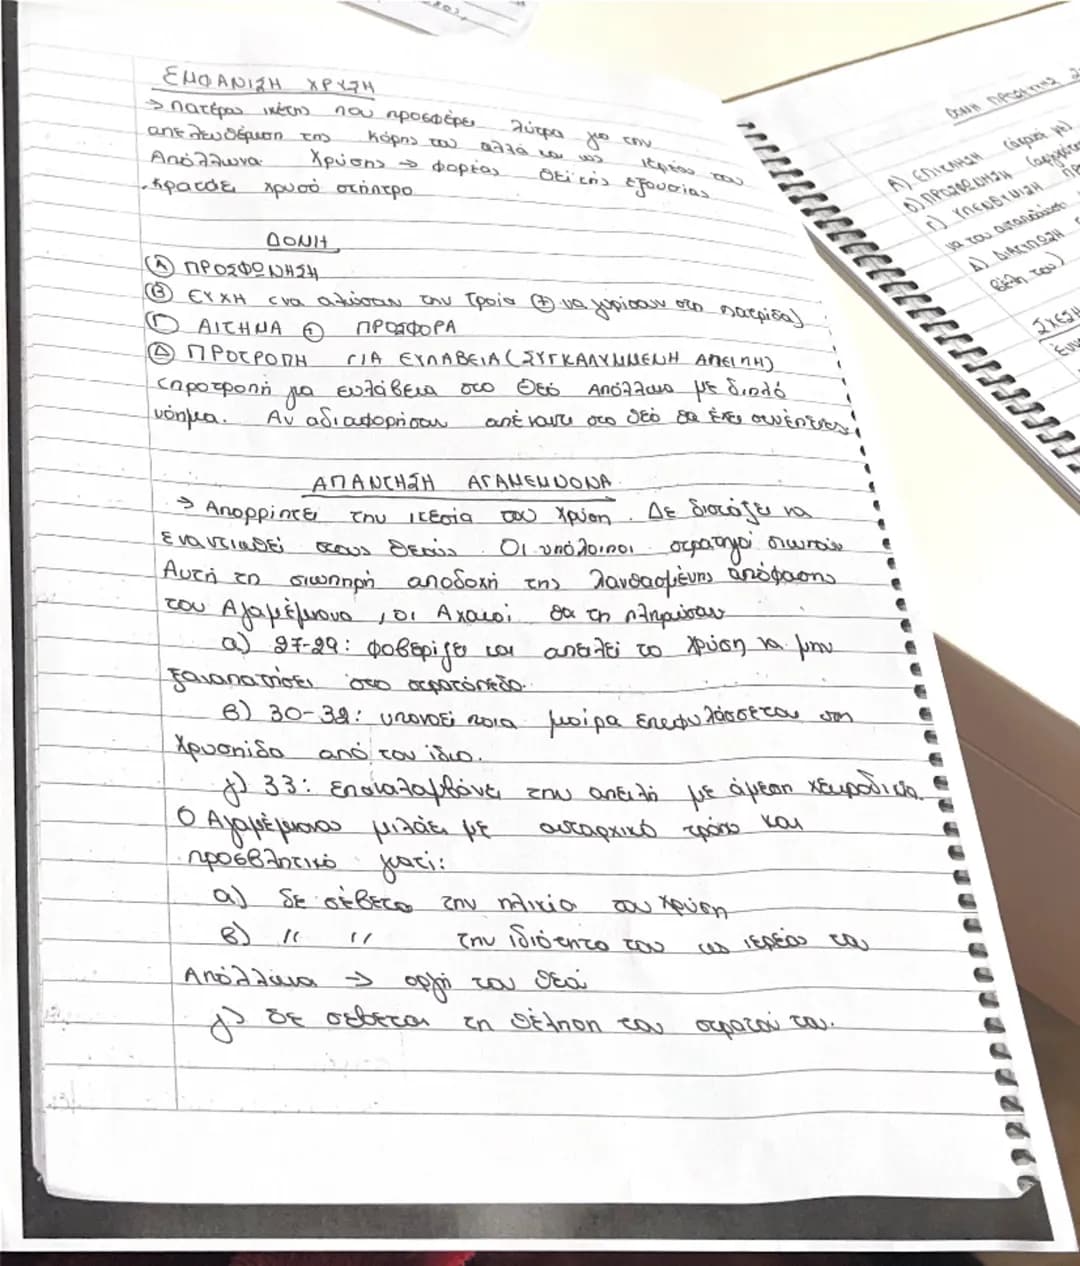 ΕΜΦΑΝΙΣΗ ΧΡΥΣΗ
→ Πατέρας ικέτης που προσφέρει λύτρα για την
απελευθέρωση της κόρης του αλλά και ως ιερέας του
Απόλλωνα Χρύσης → φορέας θεϊκής εξουσίας
κρατάει χρυσό σκήπτρο
ΔΟΜΗ
Α ΠΡΟΣΦΩΝΗΣΗ
Β ΕΥΧΗ (να αλώσουν την Τροία ⊕ να γυρίσουν στη πατρίδα)
Γ ΑΙΤΗΜΑ ⊕ ΠΡΟΣΦΟΡΑ
Δ ΠΡΟΤΡΟΠΗ ΓΙΑ ΕΥΛΑΒΕΙΑ (ΣΥΓΚΑΛΥΜΜΕΝΗ ΑΠΕΙΛΗ)
(προτροπή για ευλάβεια στο Θεό Απόλλωνα με διπλό
νόημα. Αν αδιαφορήσουν απέναντι στο θεό θα έχει συνέπειες
ΑΠΑΝΤΗΣΗ ΑΓΑΜΕΜΝΟΝΑ
→ Απορρίπτει την ικεσία του Χρύση. Δε διστάζει να
εναντιωθεί στους θεούς. Οι υπόλοιποι στρατηγοί σιωπούν
Αυτή τη σιωπηρή αποδοχή της λανθασμένης απόφασης
του Αγαμέμνονα, οι Αχαιοί θα τη πληρώσουν
α) 27-29: φοβερίζει και απειλεί το Χρύση να μην
ξαναπατήσει στο στρατόπεδο.
β) 30-32: υπονοεί ποια μοίρα επεφυλάσσεται στη
Χρυσηίδα από τον ίδιο.
γ) 33: Επαναλαμβάνει την απειλή με άμεση χειροδικία.
Ο Αγαμέμνονας μιλάει με αυταρχικό τρόπο και
προσβλητικό γιατί:
α) δε σέβεται την ηλικία του Χρύση
β) '' '' την ιδιότητα του ως ιερέας του
Απόλλωνα → οργή του θεού
γ) δε σέβεται τη θέληση του στρατού του.
ΔΟΜΗ ΠΡΟΣΕΥΧΗΣ
Α) ΕΠΙΚΛΗΣΗ
Β) ΠΡΟΣΦΩΝΗΣΗ
Γ) ΥΠΕΝΘΥΜΙΣΗ
να του ανταποδώσει
Δ) ΔΙΑΤΥΠΩΣΗ
βέλη του)
ΣΧΕΣΗ